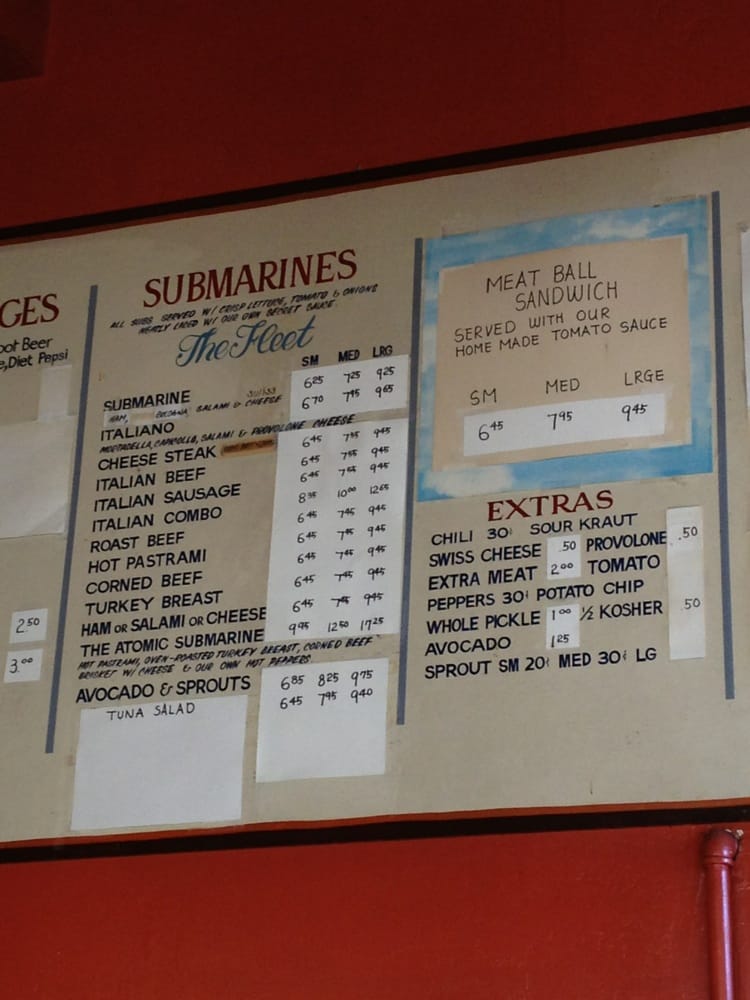 GES
oot Beer
e, Diet Pepsi
2.50
3.00
SUBMARINES
ALL SUBS SERVED W/ CRISP LETTUCE, TOMATO & ONIONS
NEATLY LACED W/ OUR OWN SECRET SAUCE.
The Fleet
SM MED LRG
SUBMARINE 6.25 7.25 9.25
HAM, BOLOGNA, SALAMI & SWISS CHEESE
ITALIANO 6.70 7.95 9.65
MORTADELLA, CAPICOLLO, SALAMI & PROVOLONE CHEESE
CHEESE STEAK 6.45 7.55 9.45
ITALIAN BEEF 6.45 7.55 9.45
ITALIAN SAUSAGE 6.45 7.55 9.45
ITALIAN COMBO 8.35 10.00 12.65
ROAST BEEF 6.45 7.45 9.45
HOT PASTRAMI 6.45 7.45 9.45
CORNED BEEF 6.45 7.45 9.45
TURKEY BREAST 6.45 7.45 9.45
HAM OR SALAMI OR CHEESE 6.45 7.45 9.45
THE ATOMIC SUBMARINE 9.95 12.50 17.25
HOT PASTRAMI, OVEN-ROASTED TURKEY BREAST, CORNED BEEF
BRISKET W/ CHEESE & OUR OWN HOT PEPPERS
AVOCADO & SPROUTS 6.85 8.25 9.75
TUNA SALAD 6.45 7.95 9.40
MEAT BALL
SANDWICH
SERVED WITH OUR
HOME MADE TOMATO SAUCE
SM MED LRGE
6.45 7.95 9.45
EXTRAS
CHILI 30¢ SOUR KRAUT
SWISS CHEESE .50 PROVOLONE .50
EXTRA MEAT 2.00 TOMATO
PEPPERS 30¢ POTATO CHIP
WHOLE PICKLE 1.00 ½ KOSHER .50
AVOCADO 1.25
SPROUT SM 20¢ MED 30¢ LG